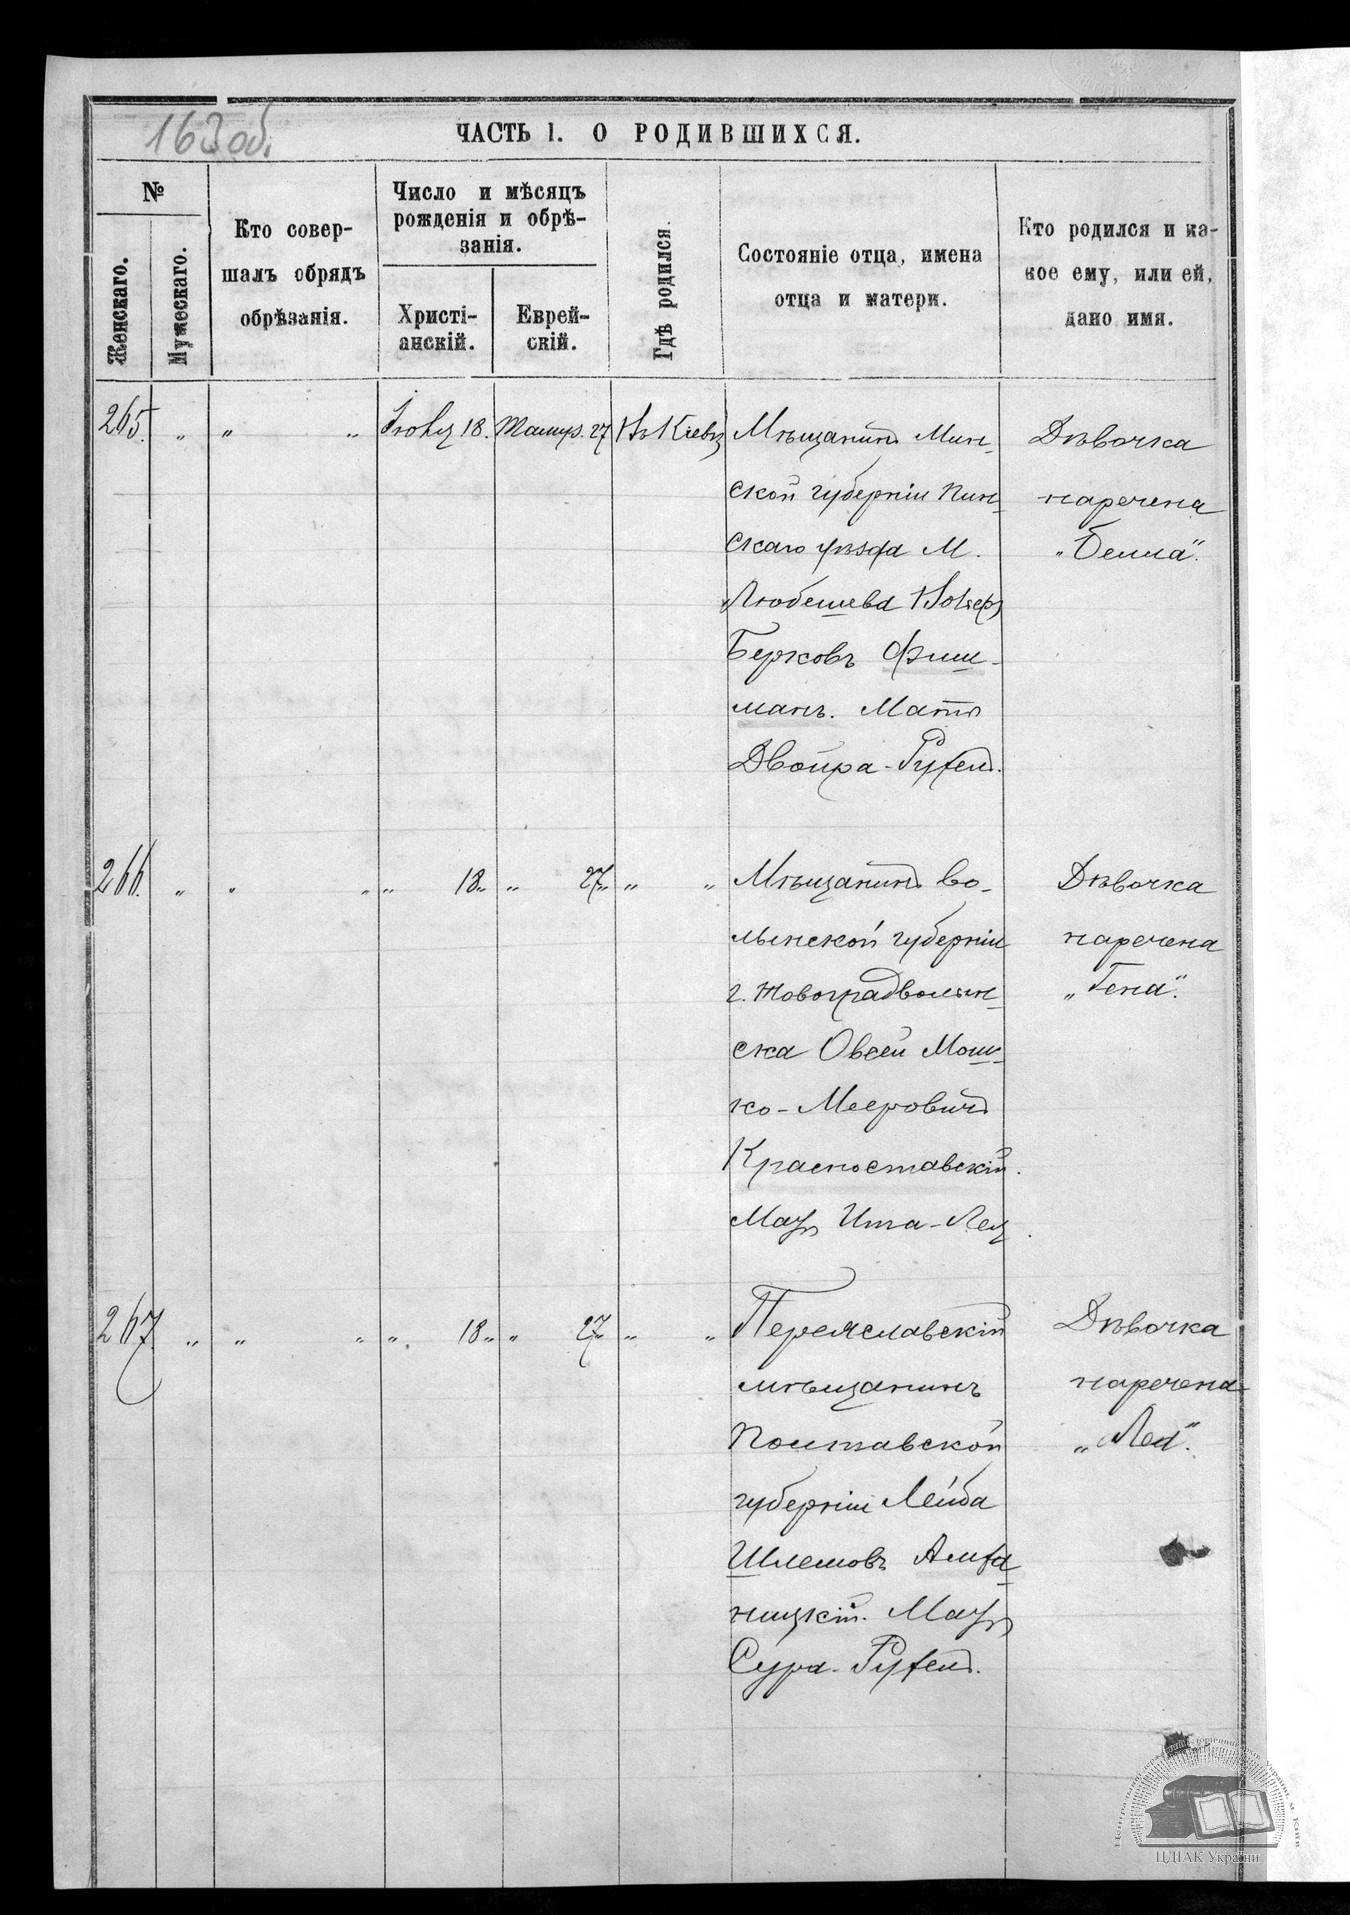 163 об.
ЧАСТЬ I. О РОДИВШИХСЯ.
№
Женскаго.
Мужескаго.
Кто совер-
шалъ обрядъ
обрѣзанія.
Число и мѣсяцъ
рожденія и обрѣ-
занія.
Христі-
анскій.
Еврей-
скій.
Гдѣ родился.
Состояніе отца, имена
отца и матери.
Кто родился и ка-
кое ему, или ей,
дано имя.
265. " " " Іюля 18. Тамуз. 27 Въ Кіевѣ
Мѣщанинъ Мин-
ской губерніи Пин-
скаго уѣзда М.
Любешева
Берковъ Фиш-
манъ. Мать
Двойра-Рухель.
Дѣвочка
наречена
„Бейла“.
266. " " " " 18 " " 27 " " "
Мѣщанинъ Во-
лынской губерніи
г. Новоградволын-
ска Овсей Мош-
ко-Мееровичъ
Красноставскій.
Мать Ита-Лея.
Дѣвочка
наречена
„Гена“.
267. " " " " 18 " " 27 " " "
Переяславскій
мѣщанинъ
Полтавской
губерніи Лейба
Шлемовъ
Мать
Сура-Рухель.
Дѣвочка
наречена
„Лея“.
ЦДІАК України